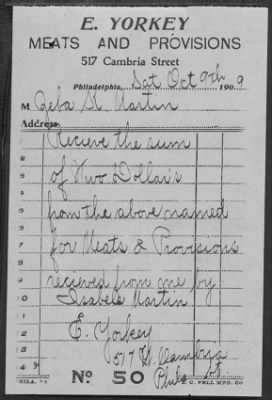 E. YORKEY
MEATS AND PROVISIONS
517 Cambria Street
Philadelphia, Sat Oct 9th 1909
M Zeba St Martin
Address
Recieve the sum
of Two Dollars
from the above named
for Meats & Provisions
recieved from me by
Isabele Martin
E. Yorkey
517 W. Cambria St.
Phila
No 50
PHILA, PA
E. C. FELL MFG. CO